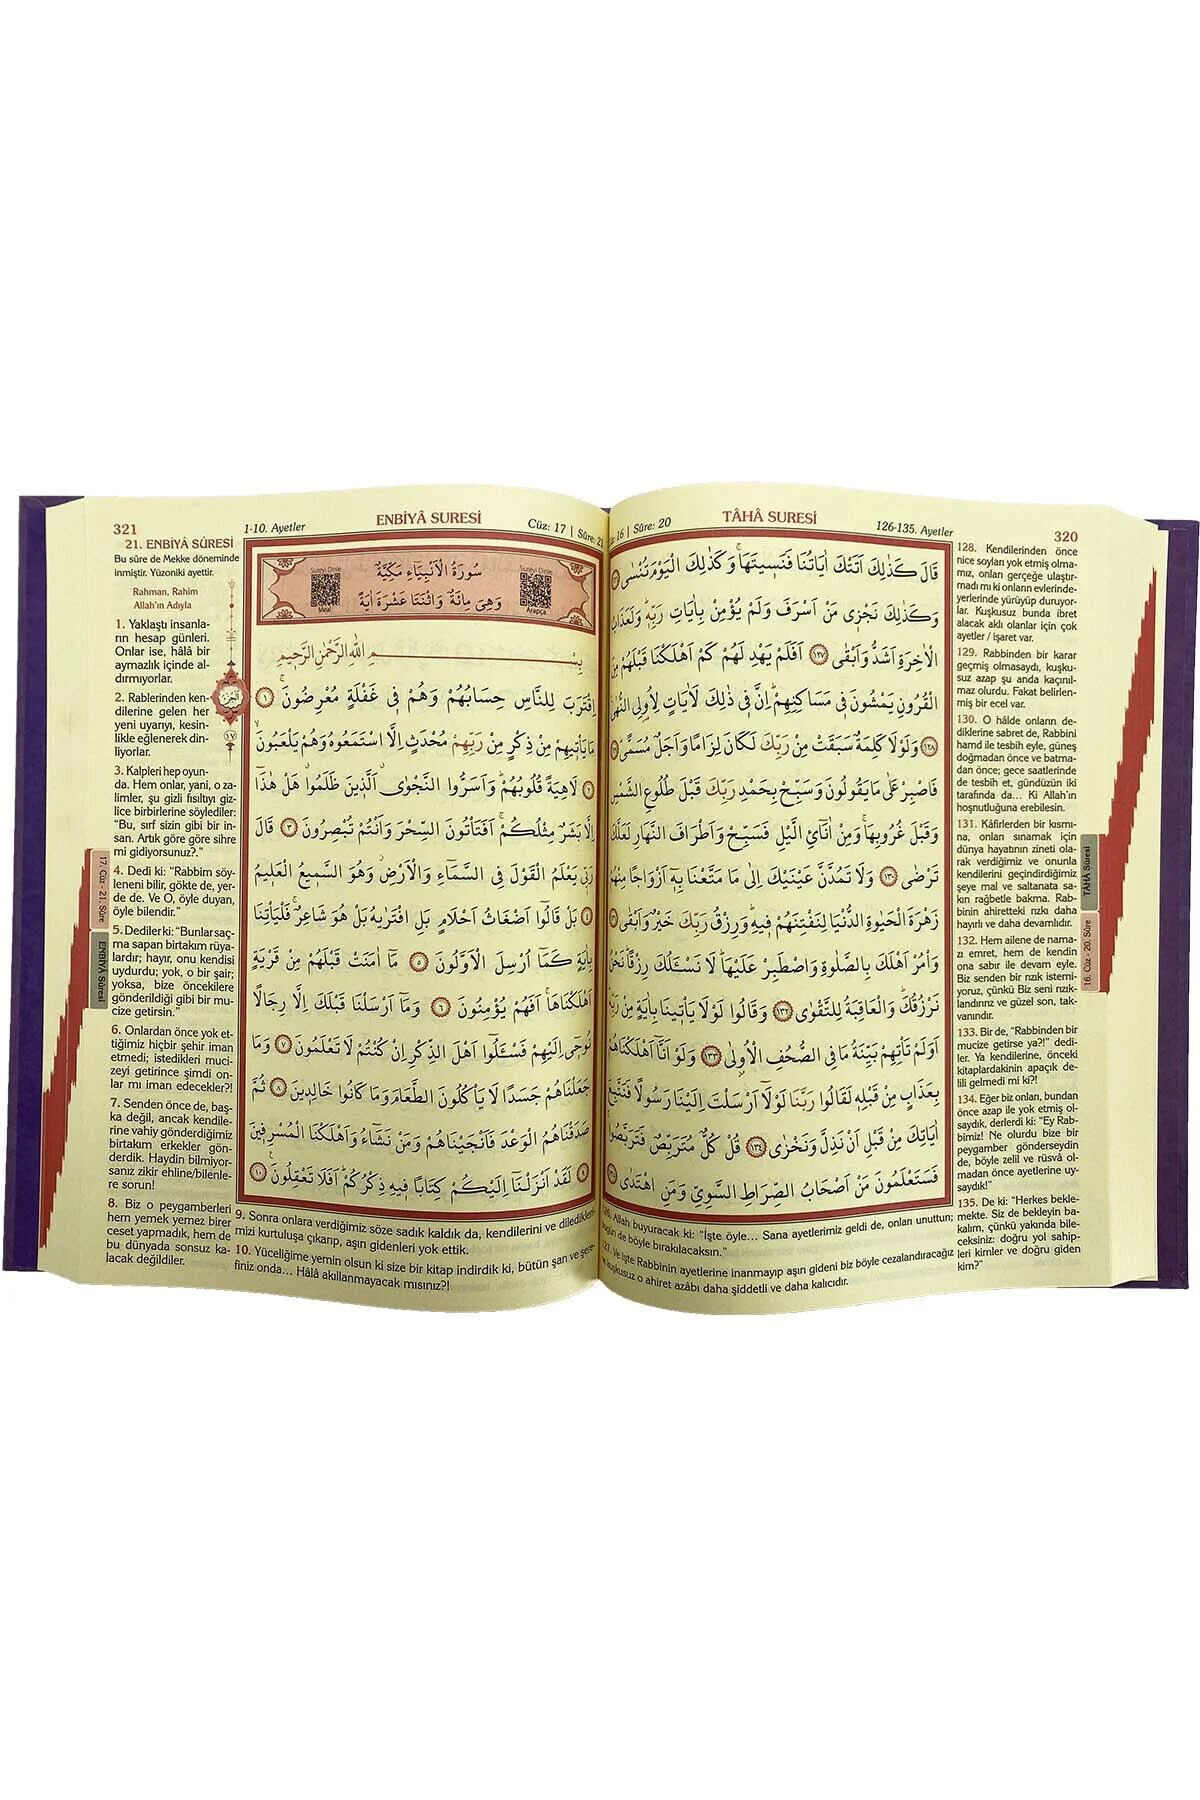 TÂHÂ SURESİ
126-135. Ayetler
320
16 | Sûre: 20
قَالَ كَذٰلِكَ اَتَتْكَ اٰيَاتُنَا فَنَسٖيتَهَاۚ وَكَذٰلِكَ الْيَوْمَ تُنْسٰى
وَكَذٰلِكَ نَجْزٖى مَنْ اَسْرَفَ وَلَمْ يُؤْمِنْ بِاٰيَاتِ رَبِّهٖۜ وَلَعَذَابُ
الْاٰخِرَةِ اَشَدُّ وَاَبْقٰى ١٢٧ اَفَلَمْ يَهْدِ لَهُمْ كَمْ اَهْلَكْنَا قَبْلَهُمْ مِنَ
الْقُرُونِ يَمْشُونَ فٖى مَسَاكِنِهِمْۜ اِنَّ فٖى ذٰلِكَ لَاٰيَاتٍ لِاُولِى النُّهٰى
١٢٨ وَلَوْلَا كَلِمَةٌ سَبَقَتْ مِنْ رَبِّكَ لَكَانَ لِزَامًا وَاَجَلٌ مُسَمًّى
فَاصْبِرْ عَلٰى مَا يَقُولُونَ وَسَبِّحْ بِحَمْدِ رَبِّكَ قَبْلَ طُلُوعِ الشَّمْسِ
وَقَبْلَ غُرُوبِهَاۚ وَمِنْ اٰنَٓائِ الَّيْلِ فَسَبِّحْ وَاَطْرَافَ النَّهَارِ لَعَلَّكَ
تَرْضٰى ١٣٠ وَلَا تَمُدَّنَّ عَيْنَيْكَ اِلٰى مَا مَتَّعْنَا بِهٖٓ اَزْوَاجًا مِنْهُمْ
زَهْرَةَ الْحَيٰوةِ الدُّنْيَا لِنَفْتِنَهُمْ فٖيهِۜ وَرِزْقُ رَبِّكَ خَيْرٌ وَاَبْقٰى
وَأْمُرْ اَهْلَكَ بِالصَّلٰوةِ وَاصْطَبِرْ عَلَيْهَاۜ لَا نَسْـَٔلُكَ رِزْقًاۜ نَحْنُ
نَرْزُقُكَۜ وَالْعَاقِبَةُ لِلتَّقْوٰى ١٣٢ وَقَالُوا لَوْلَا يَأْتٖينَا بِاٰيَةٍ مِنْ رَبِّهٖۜ
اَوَلَمْ تَأْتِهِمْ بَيِّنَةُ مَا فِى الصُّحُفِ الْاُولٰى ١٣٣ وَلَوْ اَنَّٓا اَهْلَكْنَاهُمْ
بِعَذَابٍ مِنْ قَبْلِهٖ لَقَالُوا رَبَّنَا لَوْلَٓا اَرْسَلْتَ اِلَيْنَا رَسُولًا فَنَتَّبِعَ
اٰيَاتِكَ مِنْ قَبْلِ اَنْ نَذِلَّ وَنَخْزٰى ١٣٤ قُلْ كُلٌّ مُتَرَبِّصٌ فَتَرَبَّصُواۚ
فَسَتَعْلَمُونَ مَنْ اَصْحَابُ الصِّرَاطِ السَّوِىِّ وَمَنِ اهْتَدٰى
126. Allah buyuracak ki: “İşte öyle... Sana ayetlerimiz geldi de, onları unuttun;
bugün de böyle bırakılacaksın.”
127. Ve işte Rabbinin ayetlerine inanmayıp aşırı gideni biz böyle cezalandıracağız
ve kuşkusuz o ahiret azâbı daha şiddetli ve daha kalıcıdır.
128. Kendilerinden önce
nice soyları yok etmiş olma-
mız, onları gerçeğe ulaştır-
madı mı ki onların evlerinde-
yerlerinde yürüyüp duruyor-
lar. Kuşkusuz bunda ibret
alacak aklı olanlar için çok
ayetler / işaret var.
129. Rabbinden bir karar
geçmiş olmasaydı, kuşku-
suz azap şu anda kaçınıl-
maz olurdu. Fakat belirlen-
miş bir ecel var.
130. O hâlde onların de-
diklerine sabret de, Rabbini
hamd ile tesbih eyle, güneş
doğmadan önce ve batma-
dan önce; gece saatlerinde
de tesbih et, gündüzün iki
tarafında da... Ki Allah’ın
hoşnutluğuna erebilesin.
131. Kâfirlerden bir kısmı-
na, onları sınamak için
dünya hayatının zineti ola-
rak verdiğimiz ve onunla
kendilerini geçindirdiğimiz
şeye mal ve saltanata sa-
kın rağbetle bakma. Rab-
binin ahiretteki rızkı daha
hayırlı ve daha devamlıdır.
132. Hem ailene de nama-
zı emret, hem de kendin
ona sabır ile devam eyle.
Biz senden bir rızık istemi-
yoruz, çünkü Biz seni rızık-
landırırız ve güzel son, tak-
vanındır.
133. Bir de, “Rabbinden bir
mucize getirse ya?!” dedi-
ler. Ya kendilerine, önceki
kitaplardakinin apaçık de-
lili gelmedi mi ki?!
134. Eğer biz onları, bundan
önce azap ile yok etmiş ol-
saydık, derlerdi ki: “Ey Rab-
bimiz! Ne olurdu bize bir
peygamber gönderseydin
de, böyle zelil ve rüsvâ ol-
madan önce ayetlerine uy-
saydık!”
135. De ki: “Herkes bekle-
mekte. Siz de bekleyin ba-
kalım, çünkü yakında bile-
ceksiniz: doğru yol sahip-
leri kimler ve doğru giden
kim?”
TÂHÂ Sûresi
16. Cüz - 20. Sûre
321
1-10. Ayetler
ENBİYÂ SURESİ
Cüz: 17 | Sûre: 21
Sureyi Dinle
Meal
Sureyi Dinle
Arapça
سُورَةُ الْاَنْبِيَاءِ مَكِّيَّةٌ
وَهِىَ مِائَةٌ وَاثْنَتَا عَشْرَةَ اٰيَةً
بِسْمِ اللّٰهِ الرَّحْمٰنِ الرَّحٖيمِ
اِقْتَرَبَ لِلنَّاسِ حِسَابُهُمْ وَهُمْ فٖى غَفْلَةٍ مُعْرِضُونَۚ ١
مَا يَأْتٖيهِمْ مِنْ ذِكْرٍ مِنْ رَبِّهِمْ مُحْدَثٍ اِلَّا اسْتَمَعُوهُ وَهُمْ يَلْعَبُونَۙ
٢ لَاهِيَةً قُلُوبُهُمْۜ وَاَسَرُّوا النَّجْوٰىۗ اَلَّذٖينَ ظَلَمُواۗ هَلْ هٰذَٓا
اِلَّا بَشَرٌ مِثْلُكُمْۚ اَفَتَأْتُونَ السِّحْرَ وَاَنْتُمْ تُبْصِرُونَ ٣ قَالَ
رَبّٖى يَعْلَمُ الْقَوْلَ فِى السَّمَٓاءِ وَالْاَرْضِۘ وَهُوَ السَّمٖيعُ الْعَلٖيمُ
٤ بَلْ قَالُٓوا اَضْغَاثُ اَحْلَامٍ بَلِ افْتَرٰيهُ بَلْ هُوَ شَاعِرٌۚ فَلْيَأْتِنَا
بِاٰيَةٍ كَمَٓا اُرْسِلَ الْاَوَّلُونَ ٥ مَٓا اٰمَنَتْ قَبْلَهُمْ مِنْ قَرْيَةٍ
اَهْلَكْنَاهَاۚ اَفَهُمْ يُؤْمِنُونَ ٦ وَمَٓا اَرْسَلْنَا قَبْلَكَ اِلَّا رِجَالًا
نُوحٖٓى اِلَيْهِمْ فَسْـَٔلُٓوا اَهْلَ الذِّكْرِ اِنْ كُنْتُمْ لَا تَعْلَمُونَ ٧ وَمَا
جَعَلْنَاهُمْ جَسَدًا لَا يَأْكُلُونَ الطَّعَامَ وَمَا كَانُوا خَالِدٖينَ ٨ ثُمَّ
صَدَقْنَاهُمُ الْوَعْدَ فَاَنْجَيْنَاهُمْ وَمَنْ نَشَٓاءُ وَاَهْلَكْنَا الْمُسْرِفٖينَ
٩ لَقَدْ اَنْزَلْنَٓا اِلَيْكُمْ كِتَابًا فٖيهِ ذِكْرُكُمْۜ اَفَلَا تَعْقِلُونَ ١٠
21. ENBİYÂ SÛRESİ
Bu sûre de Mekke döneminde
inmiştir. Yüzoniki ayettir.
Rahman, Rahim
Allah’ın Adıyla
1. Yaklaştı insanla-
rın hesap günleri.
Onlar ise, hâlâ bir
aymazlık içinde al-
dırmıyorlar.
2. Rablerinden ken-
dilerine gelen her
yeni uyarıyı, kesin-
likle eğlenerek din-
liyorlar.
3. Kalpleri hep oyun-
da. Hem onlar, yani, o za-
limler, şu gizli fısıltıyı giz-
lice birbirlerine söylediler:
“Bu, sırf sizin gibi bir in-
san. Artık göre göre sihre
mi gidiyorsunuz?.”
4. Dedi ki: “Rabbim söy-
leneni bilir, gökte de, yer-
de de. Ve O, öyle duyan,
öyle bilendir.”
5. Dediler ki: “Bunlar saç-
ma sapan birtakım rüya-
lardır; hayır, onu kendisi
uydurdu; yok, o bir şair;
yoksa, bize öncekilere
gönderildiği gibi bir mu-
cize getirsin.”
6. Onlardan önce yok et-
tiğimiz hiçbir şehir iman
etmedi; istedikleri muci-
zeyi getirince şimdi on-
lar mı iman edecekler?!
7. Senden önce de, baş-
ka değil, ancak kendile-
rine vahiy gönderdiğimiz
birtakım erkekler gön-
derdik. Haydin bilmiyor-
sanız zikir ehline/bilenle-
re sorun!
8. Biz o peygamberleri
hem yemek yemez birer
ceset yapmadık, hem de
bu dünyada sonsuz ka-
lacak değildiler.
9. Sonra onlara verdiğimiz söze sadık kaldık da, kendilerini ve diledikleri-
mizi kurtuluşa çıkarıp, aşırı gidenleri yok ettik.
10. Yüceliğime yemin olsun ki size bir kitap indirdik ki, bütün şan ve şere-
finiz onda... Hâlâ akıllanmayacak mısınız?!
الجزء
١٧
17. Cüz - 21. Sûre
ENBİYÂ Sûresi